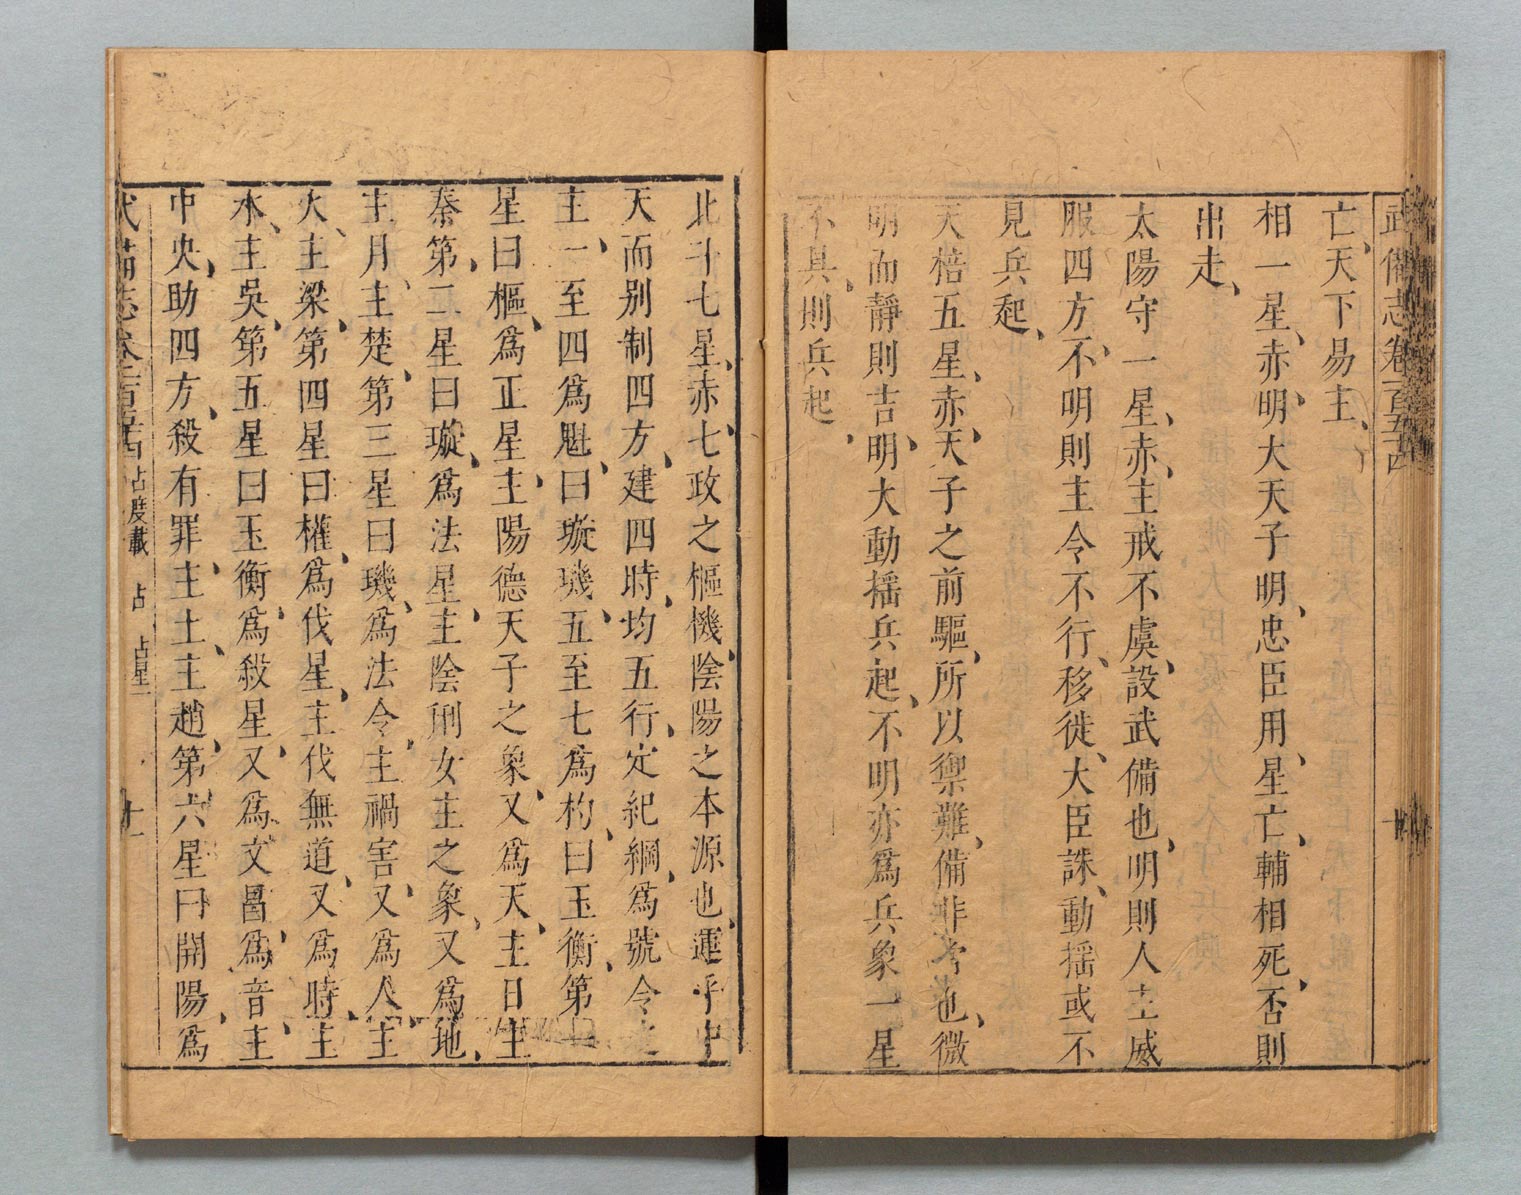 武備志卷一百五十四
亡、天下易主、
相一星、赤、明大天子明、忠臣用、星亡、輔相死、否則
出走、
太陽守一星、赤、主戒不虞、設武備也、明則人主威
服四方、不明則主令不行、移徙、大臣誅、動揺或不
見兵起、
天棓五星、赤、天子之前驅、所以禦難、備非常也、微
明而靜則吉、明大動揺兵起、不明亦爲兵象一星
不具、則兵起、
北斗七星、赤、七政之樞機、陰陽之本源也、運乎中
天而别制四方、建四時、均五行、定紀綱、爲號令之
主、一至四爲魁、曰璇璣、五至七爲杓、曰玉衡、第一
星曰樞、爲正星、主陽德天子之象、又爲天、主日主
秦第、二星曰璇、爲法星、主陰刑女主之象、又爲地、
主月、主楚、第三星曰璣、爲法令、主禍害、又爲人、主
火、主梁、第四星曰權、爲伐星、主伐無道、又爲時、主
水、主吳、第五星曰玉衡、爲殺星、又爲文昌、爲音、主
中央、助四方、殺有罪、主土、主趙、第六星曰開陽、爲
武備志卷一百五十四 占度載 占 占星一 十一